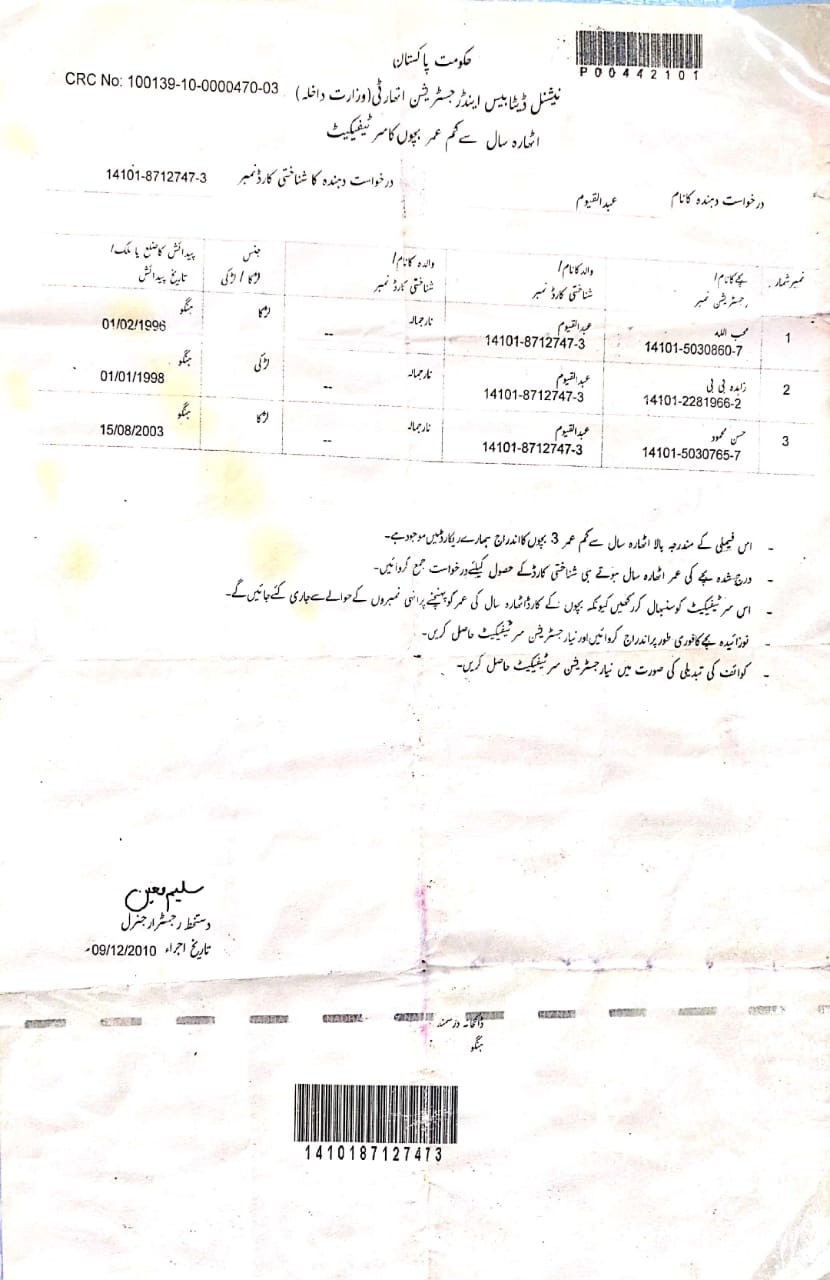 P00442101
حکومت پاکستان
CRC No: 100139-10-0000470-03
نیشنل ڈیٹا بیس اینڈ رجسٹریشن اتھارٹی (وزارت داخلہ)
اٹھارہ سال سے کم عمر بچوں کا سرٹیفیکیٹ
درخواست دہندہ کا نام عبدالقیوم درخواست دہندہ کا شناختی کارڈ نمبر 14101-8712747-3
نمبر شمار بچے کا نام/ والد کا نام/ والدہ کا نام/ جنس پیدائش کا ضلع یا ملک/
رجسٹریشن نمبر شناختی کارڈ نمبر شناختی کارڈ نمبر لڑکا / لڑکی تاریخ پیدائش
1 محب اللہ عبدالقیوم نار جمالہ لڑکا ہنگو
14101-5030860-7 14101-8712747-3 -- 01/02/1996
2 زاہدہ بی بی عبدالقیوم نار جمالہ لڑکی ہنگو
14101-2281966-2 14101-8712747-3 -- 01/01/1998
3 حسن محمود عبدالقیوم نار جمالہ لڑکا ہنگو
14101-5030765-7 14101-8712747-3 -- 15/08/2003
- اس فیملی کے مندرجہ بالا اٹھارہ سال سے کم عمر 3 بچوں کا اندراج ہمارے ریکارڈ میں موجود ہے۔
- درج شدہ بچے کی عمر اٹھارہ سال ہوتے ہی شناختی کارڈ کے حصول کیلئے درخواست جمع کروائیں۔
- اس سرٹیفیکیٹ کو سنبھال کر رکھیں کیونکہ بچوں کے کارڈ اٹھارہ سال کی عمر کو پہنچنے پر انہی نمبروں کے حوالے سے جاری کئے جائیں گے۔
- نوزائیدہ بچے کا فوری طور پر اندراج کروائیں اور نیا رجسٹریشن سرٹیفیکیٹ حاصل کریں۔
- کوائف کی تبدیلی کی صورت میں نیا رجسٹریشن سرٹیفیکیٹ حاصل کریں۔
سلیم معین
دستخط رجسٹرار جنرل
تاریخ اجراء 09/12/2010
ڈاکخانہ درسمند
ہنگو
1410187127473